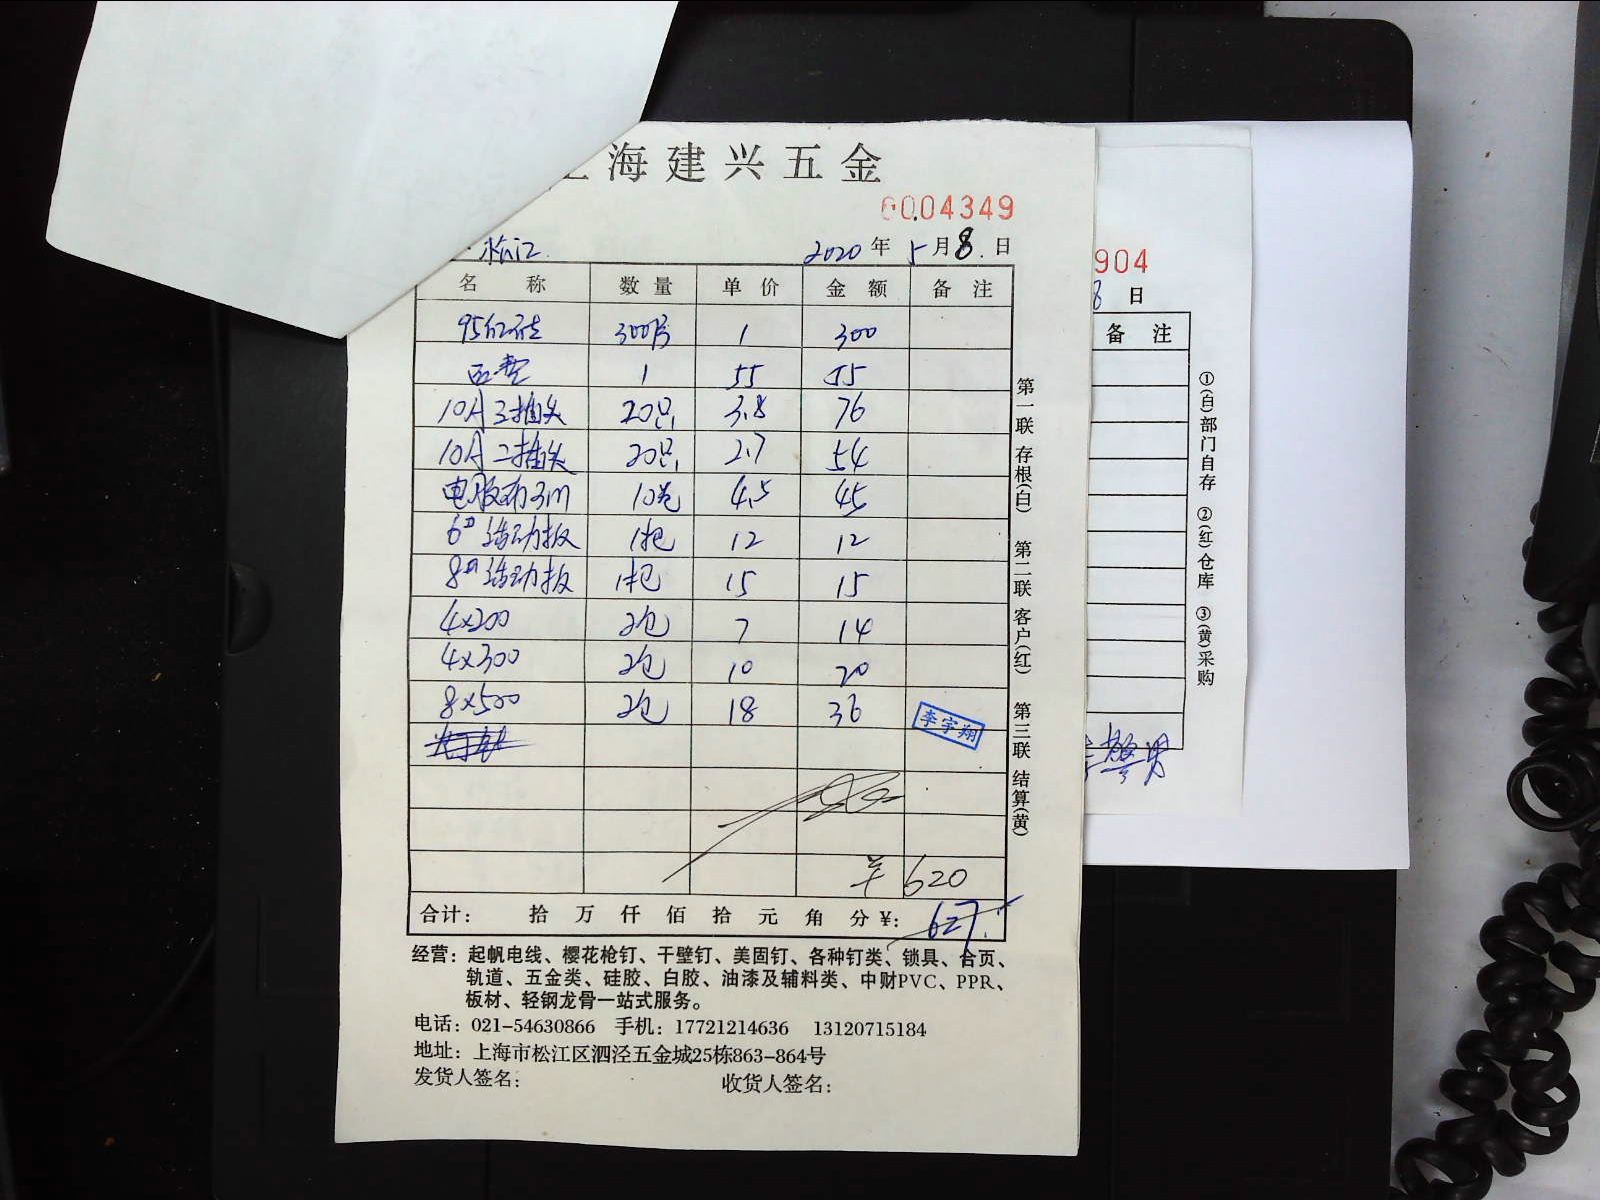 海建兴五金
0004349
松江 2020年5月8日
名称 数量 单价 金额 备注
95红砖 300片 1 300
1 55 55
10A三插头 20只 3.8 76
10A二插头 20只 2.7 54
电胶布3m 10卷 4.5 45
6"活动扳 1把 12 12
8"活动扳 1把 15 15
4×200 2包 7 14
4×300 2包 10 20
8×500 2包 18 36
李宇翔
¥620
合计: 拾万仟佰拾元角分¥: 627.
经营:起帆电线、樱花枪钉、干壁钉、美固钉、各种钉类、锁具、合页、
轨道、五金类、硅胶、白胶、油漆及辅料类、中财PVC、PPR、
板材、轻钢龙骨一站式服务。
电话:021-54630866 手机:17721214636 13120715184
地址:上海市松江区泗泾五金城25栋863-864号
发货人签名: 收货人签名:
第一联存根(白) 第二联客户(红) 第三联结算(黄)
904
8日
备注
①(白)部门自存 ②(红)仓库 ③(黄)采购